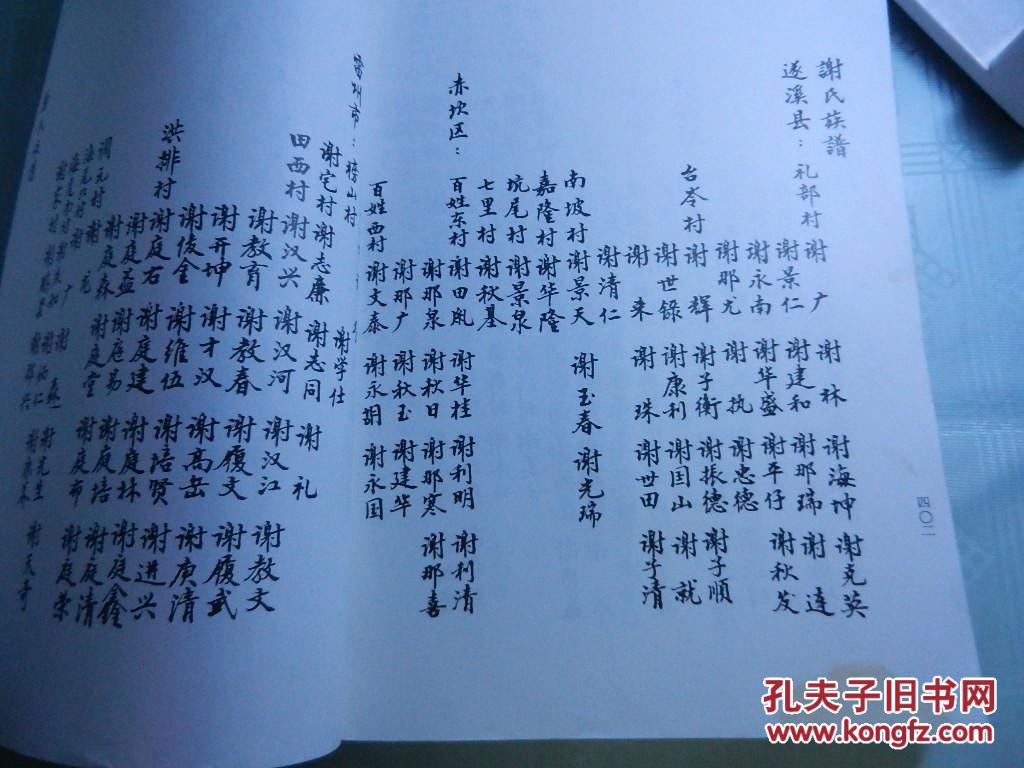 謝氏族譜
遂溪县：礼部村
谢广 谢林 谢海坤 谢克英
谢景仁 谢建和 谢那瑞 谢逹
谢永南 谢华盛 谢平仔 谢秋茂
谢那尤 谢执 谢忠德
台岑村 谢辉 谢子衡 谢振德 谢子順
谢世録 谢康利 谢国山 谢就
谢来 谢珠 谢世田 谢子清
谢清仁
南坡村 谢景天 谢玉春 谢光瑞
嘉隆村 谢华隆
坑尾村 谢景泉
七里村 谢秋基
赤坎区：
百姓东村 谢田凤 谢华桂 谢利明 谢利清
谢那泉 谢秋日 谢那寒 谢那喜
谢那广 谢秋玉 谢建华
百姓西村 谢文泰 谢永明 谢永国
四〇二
雷州市：榜山村
谢学仕
谢宅村 谢志廉 谢志同 谢礼
田西村 谢汉兴 谢汉河 谢汉江
谢教育 谢教春 谢履文 谢教文
谢开坤 谢才汉 谢高岳 谢履武
谢俊全 谢维伍 谢培贤 谢庚清
洪排村 谢庭右 谢庭建 谢庭林 谢进兴
谢庭益 谢庭易 谢庭培 谢庭鑫
谢庭森 谢庭堂 谢庭布 谢庭清
谢庭荣
调元村
谢天奇
孔夫子旧书网
www.kongfz.com